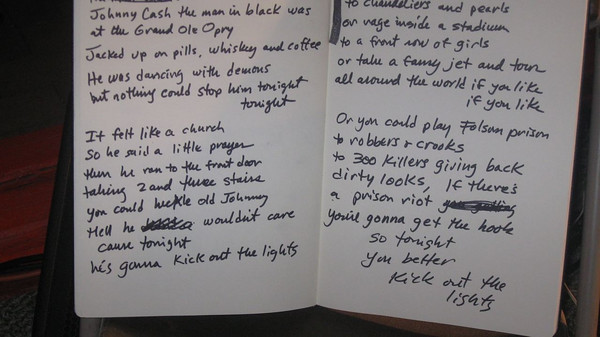 Johnny Cash the man in black was
at the Grand Ole Opry
Jacked up on pills, whiskey and coffee
He was dancing with demons
but nothing could stop him tonight
tonight
It felt like a church
So he said a little prayer
then he ran to the front door
taking 2 and three stairs
you could heckle old Johnny
Hell he wouldn't care
cause tonight
he's gonna Kick out the lights
to chandeliers and pearls
or rage inside a stadium
to a front row of girls
or take a fancy jet and tour
all around the world if you like
if you like
Or you could play Folsom prison
to robbers & crooks
to 300 killers giving back
dirty looks, If there's
a prison riot
you're gonna get the hook
so tonight
you better
Kick out the
lights